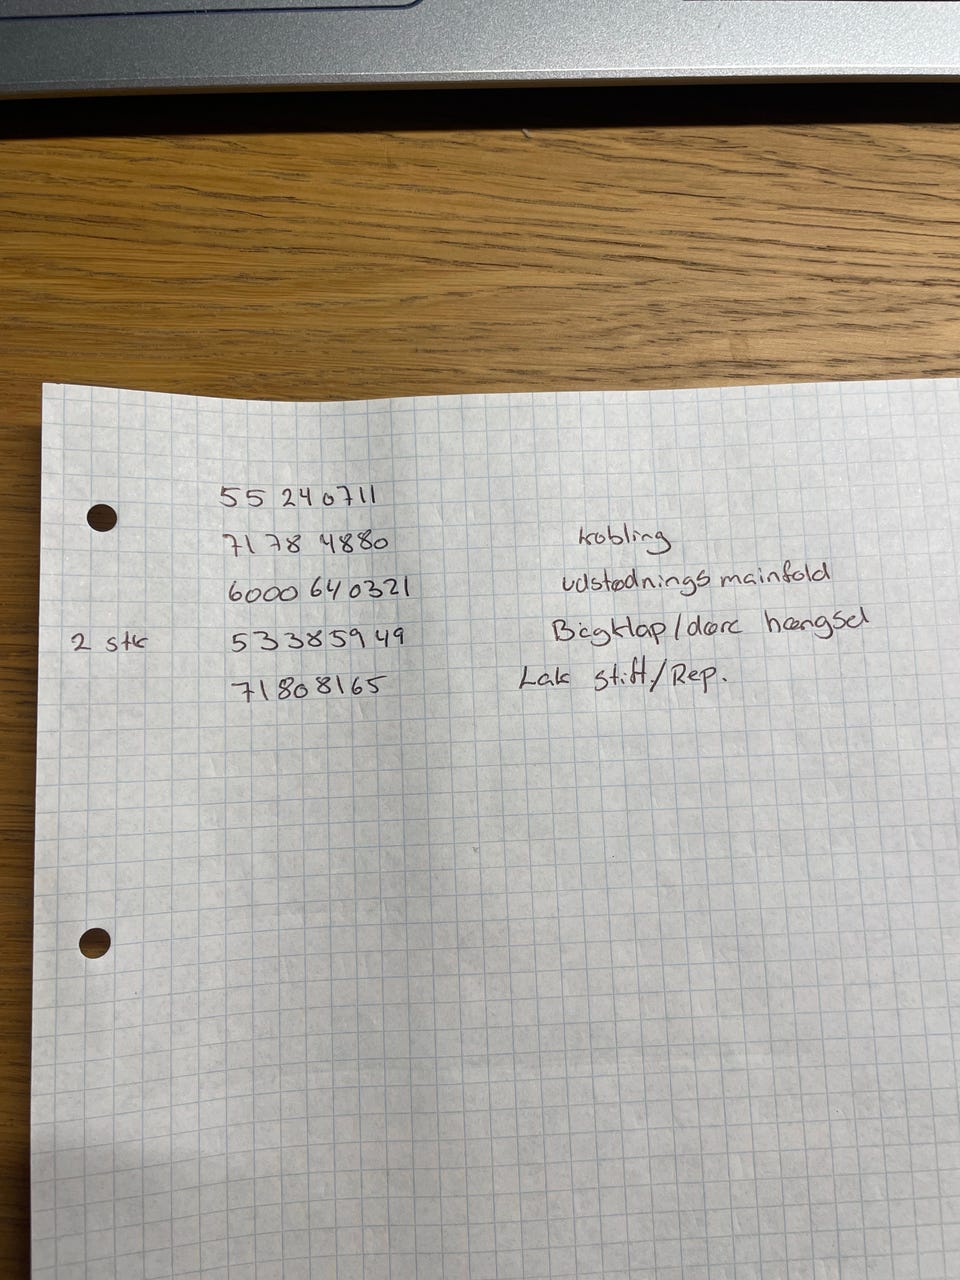 55 240711
7178 4880 kobling
6000 640321 udstødnings mainfold
2 stk 53385949 Bagklap/døre hængsel
71808165 Lak stift/Rep.